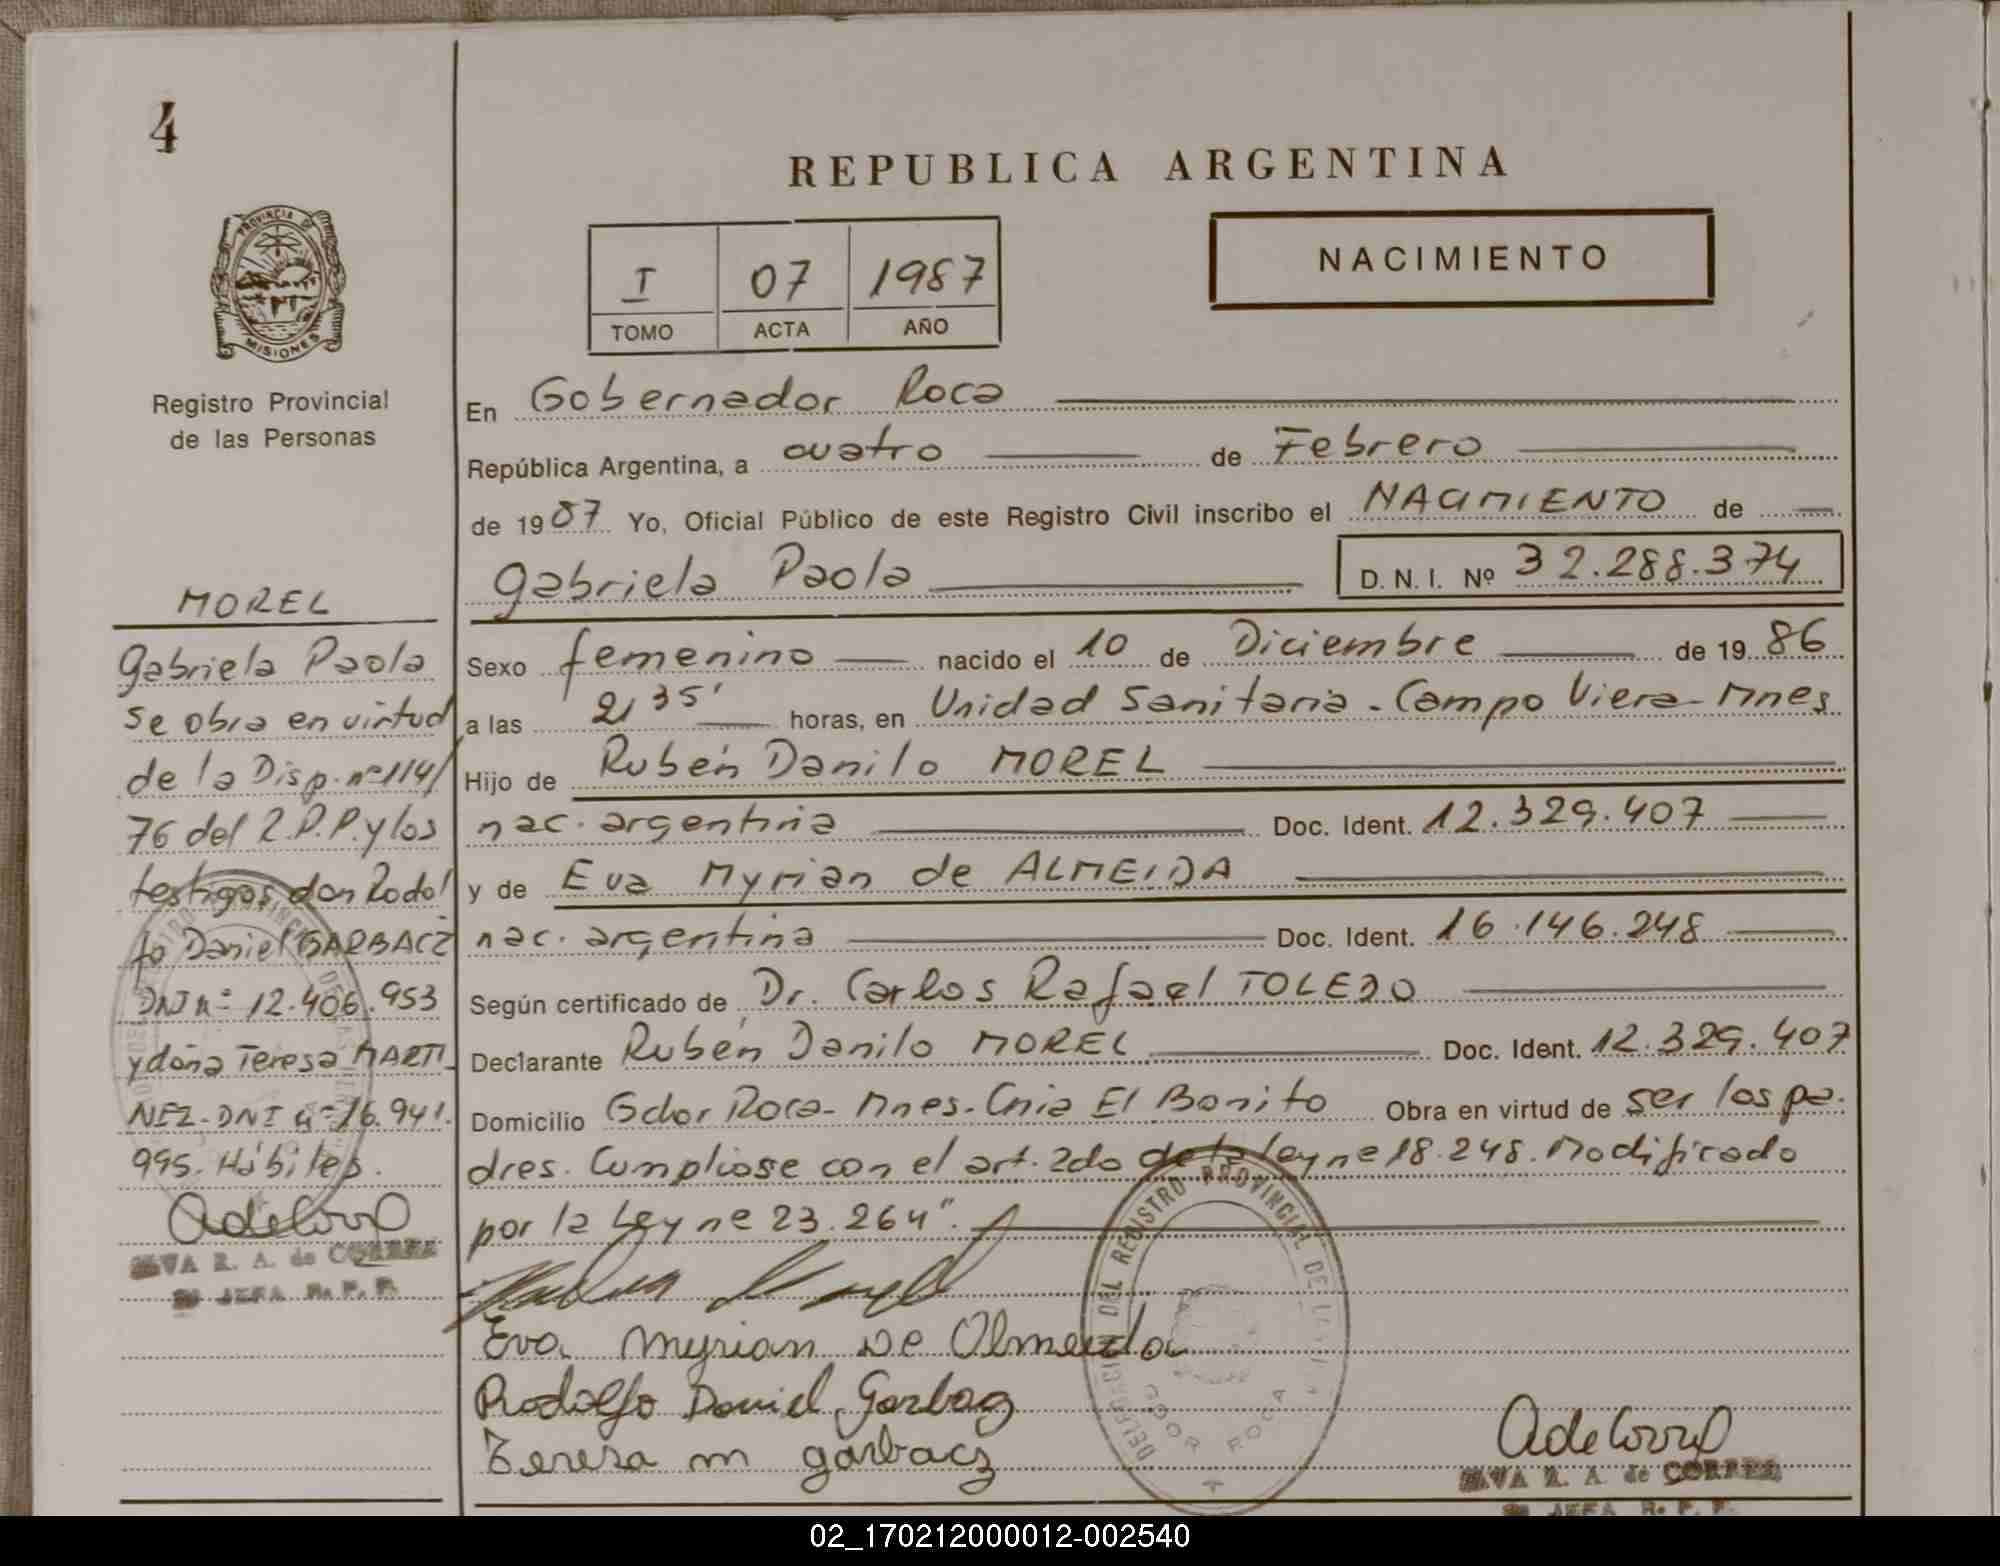 4
PROVINCIA DE
MISIONES
Registro Provincial
de las Personas
MOREL
Gabriela Paola
se obra en virtud
de la Disp. nº 114/
76 del R.P.P. y los
testigos, don Rodol
fo Daniel GARBACZ
DNI nº 12.406.953
y doña Teresa MARTI_
NEZ-DNI nº 16.941.
995. Hábiles.
R. A. de CORREA
JEFA R. P. P.
REPUBLICA ARGENTINA
I 07 1987
TOMO ACTA AÑO
NACIMIENTO
En Gobernador Roca
República Argentina, a cuatro de Febrero
de 1987 Yo, Oficial Público de este Registro Civil inscribo el NACIMIENTO de
Gabriela Paola D. N. I. Nº 32.288.374
Sexo femenino nacido el 10 de Diciembre de 1986
a las 21 35' horas, en Unidad Sanitaria - Campo Viera - Mnes
Hijo de Rubén Danilo MOREL
nac. argentina Doc. Ident. 12.329.407
y de Eva Myrian de ALMEIDA
nac. argentina Doc. Ident. 16.146.248
Según certificado de Dr. Carlos Rafael TOLEDO
Declarante Rubén Danilo MOREL Doc. Ident. 12.329.407
Domicilio Gdor Roca - Mnes - Cnia El Bonito Obra en virtud de ser los pa-
dres. Cumpliose con el art. 2do de la ley nº 18.248. Modificado
por la Ley nº 23.264".
Eva Myrian De Olmeida
Rodolfo Daniel Garbacz
Teresa M garbacz
DELEGACION DEL REGISTRO PROVINCIAL DE LAS
GDOR ROCA
R. A. de CORREA
JEFA R. P. P.
02_170212000012-002540